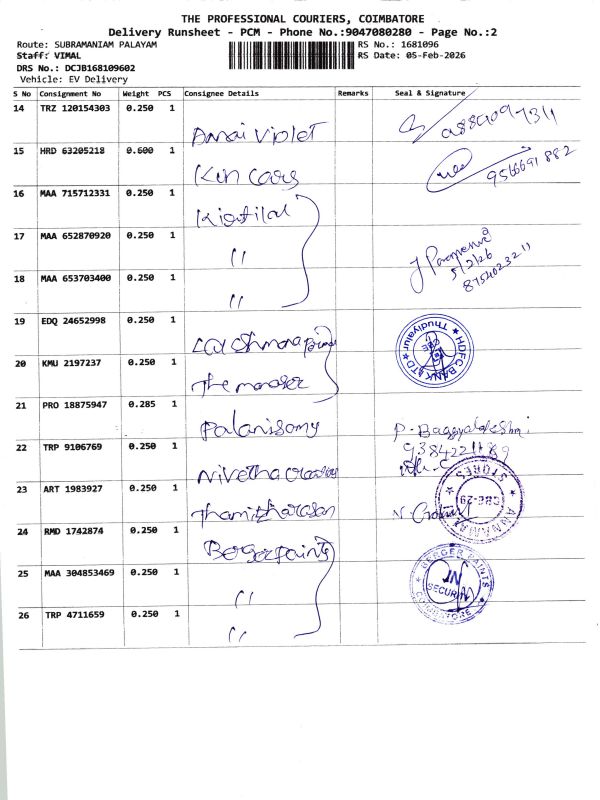 THE PROFESSIONAL COURIERS, COIMBATORE
Delivery Runsheet - PCM - Phone No.:9047080280 - Page No.:2
Route: SUBRAMANIAM PALAYAM
RS No.: 1681096
Staff: VIMAL
RS Date: 05-Feb-2026
DRS No.: DCJB168109602
Vehicle: EV Delivery
S No Consignment No Weight PCS Consignee Details Remarks Seal & Signature
14 TRZ 120154303 0.250 1
Violet
15 HRD 63205218 0.600 1
9566691882
16 MAA 715712331 0.250 1
17 MAA 652870920 0.250 1
"
5/2/26
8754023211
18 MAA 653703400 0.250 1
"
19 EDQ 24652998 0.250 1
HDFC BANK LTD
Thudiyalur
CBE
20 KMU 2197237 0.250 1
The manager
21 PRO 18875947 0.285 1
Palanisamy
P.
22 TRP 9106769 0.250 1
Nivetha
23 ART 1983927 0.250 1
STORES
CBE-29
24 RMD 1742874 0.250 1
Berger paints
25 MAA 304853469 0.250 1
"
BERGER PAINTS
IN
SECURITY
COIMBATORE
26 TRP 4711659 0.250 1
"